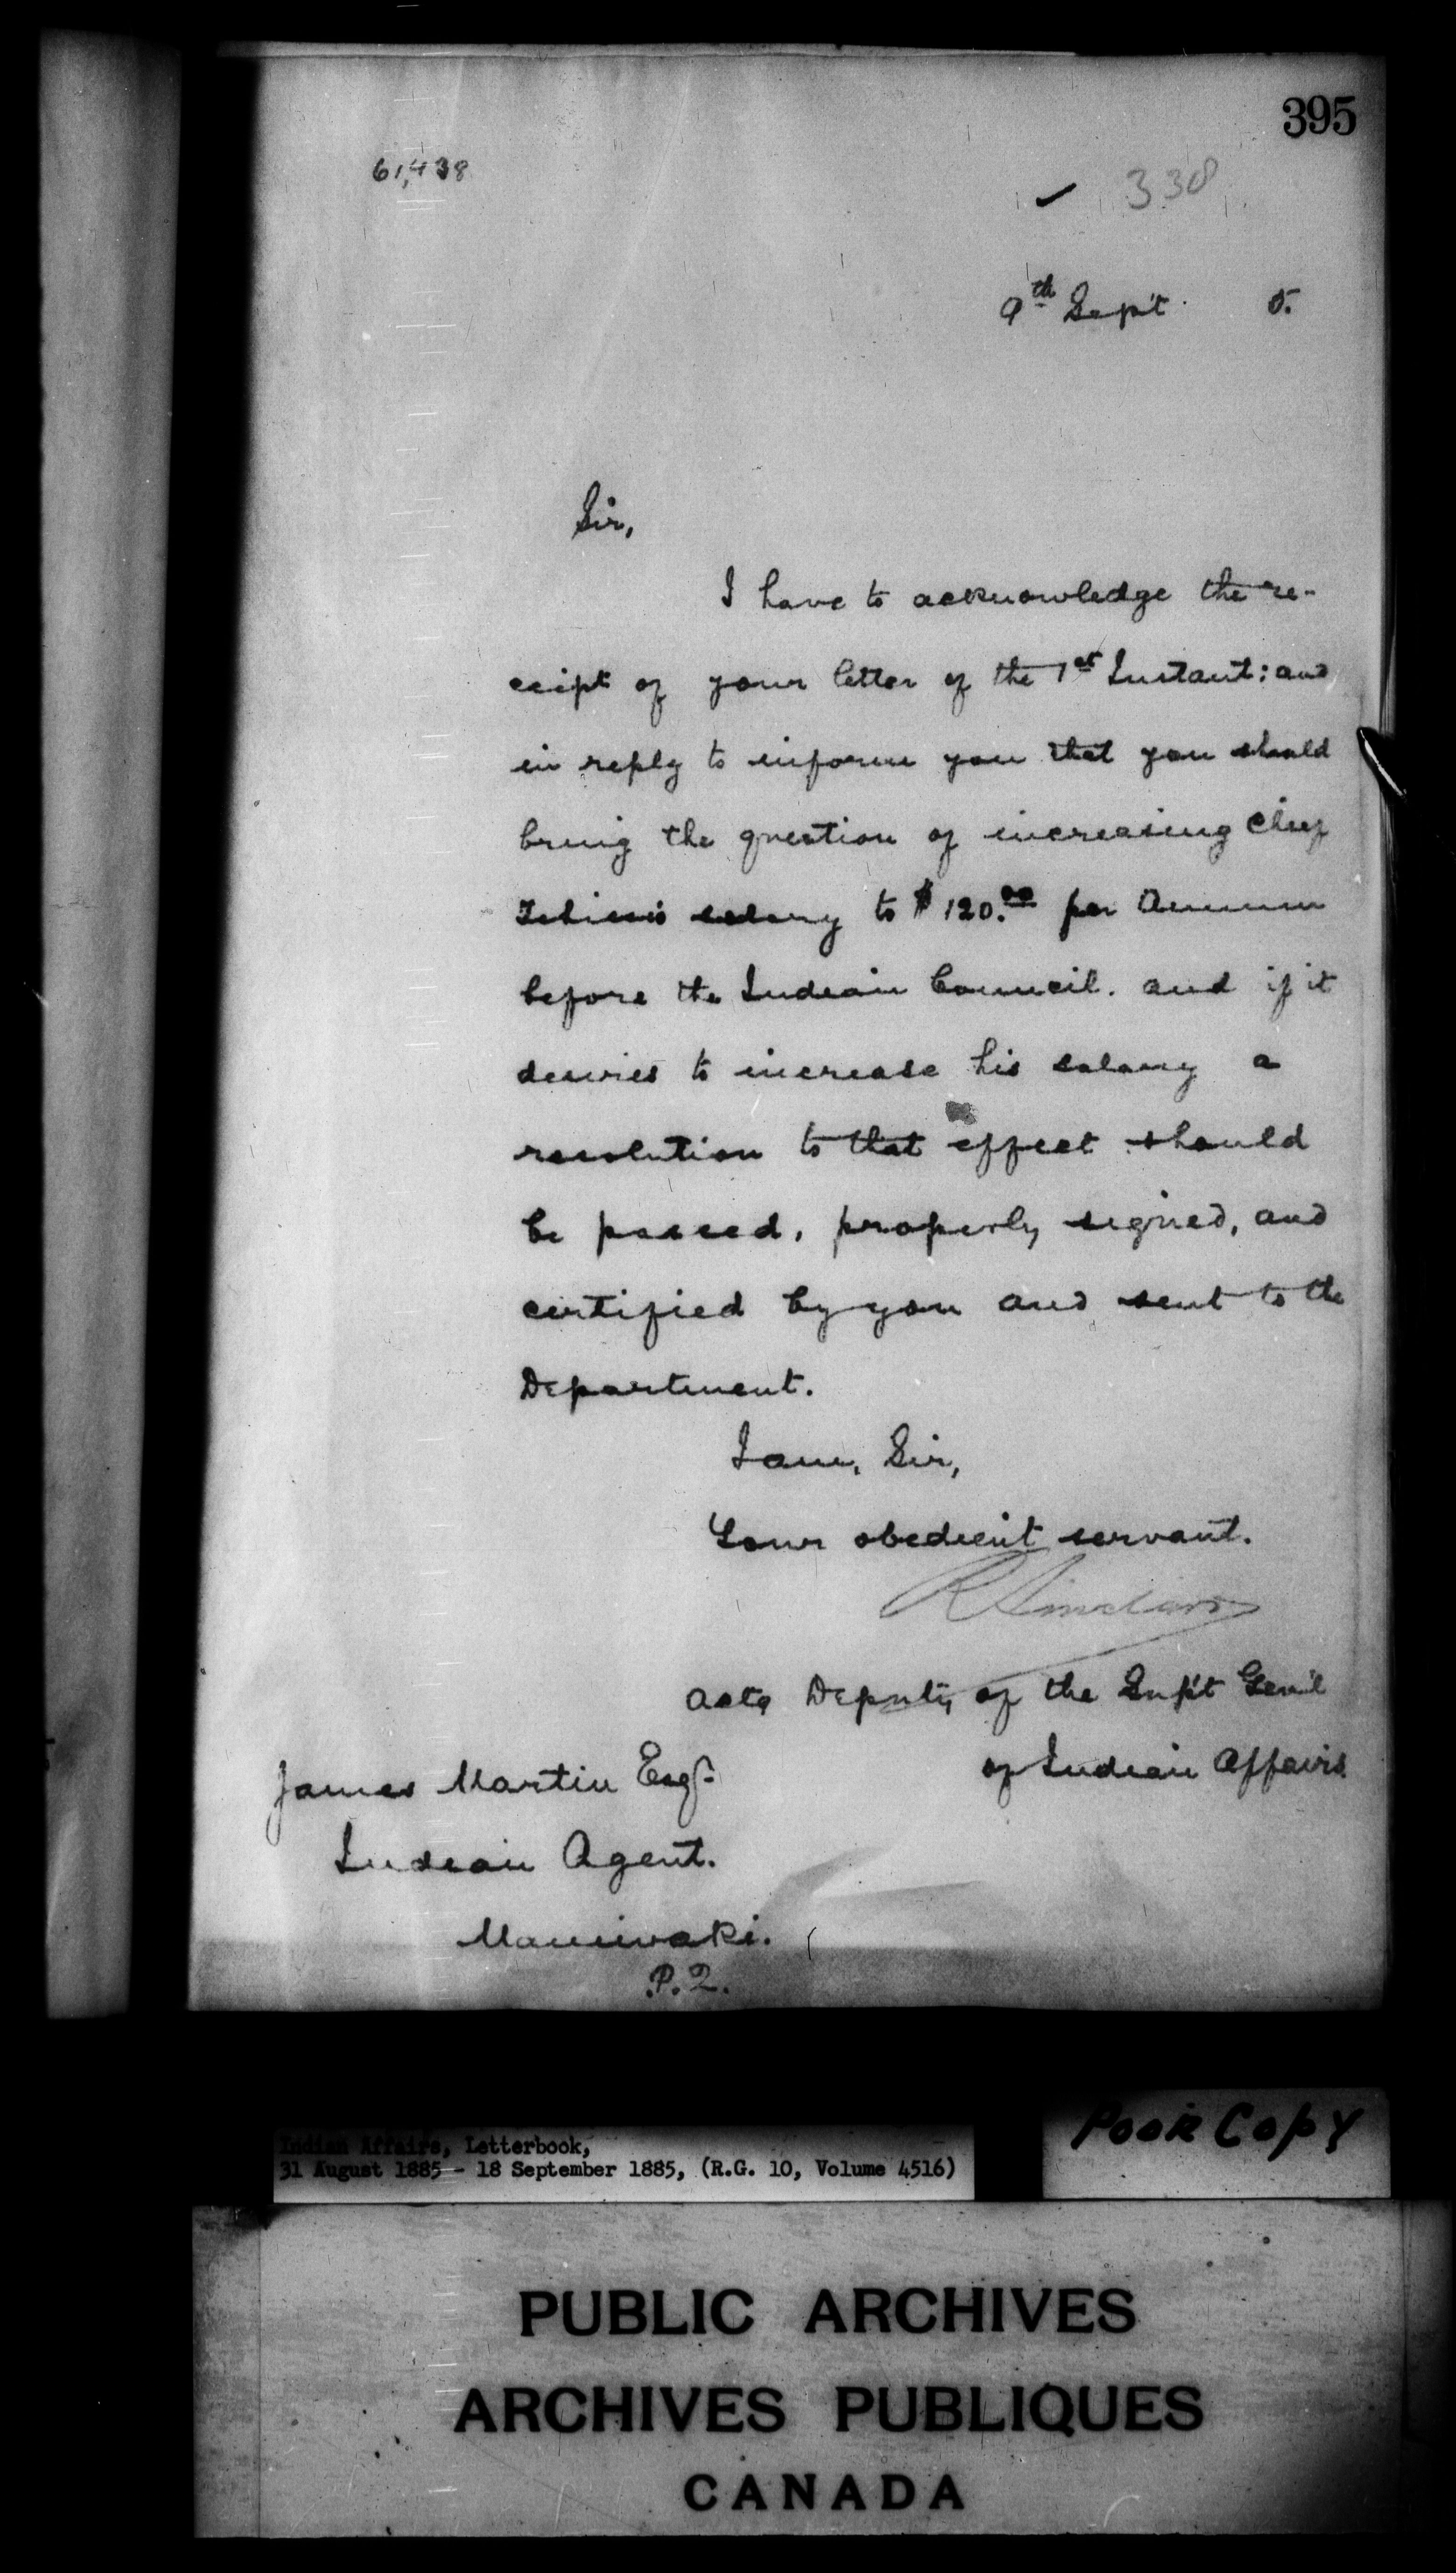 395
61,438
338
9th Sep't 5.
Sir,
I have to acknowledge the re-
ceipt of your letter of the 1st Instant: and
in reply to inform you that you should
bring the question of increasing Chief
salary to $120.00 per Annum
before the Indian Council. and if it
desires to increase his salary a
resolution to that effect should
be passed, properly signed, and
certified by you and sent to the
Department.
I am, Sir,
Your obedient servant.
R Sinclair
Actg Deputy of the Sup't Gen'l
of Indian Affairs
James Martin Esqr.
Indian Agent.
Maniwaki.
P.Q.
Indian Affairs, Letterbook,
31 August 1885 - 18 September 1885, (R.G. 10, Volume 4516)
Poor Copy
PUBLIC ARCHIVES
ARCHIVES PUBLIQUES
CANADA